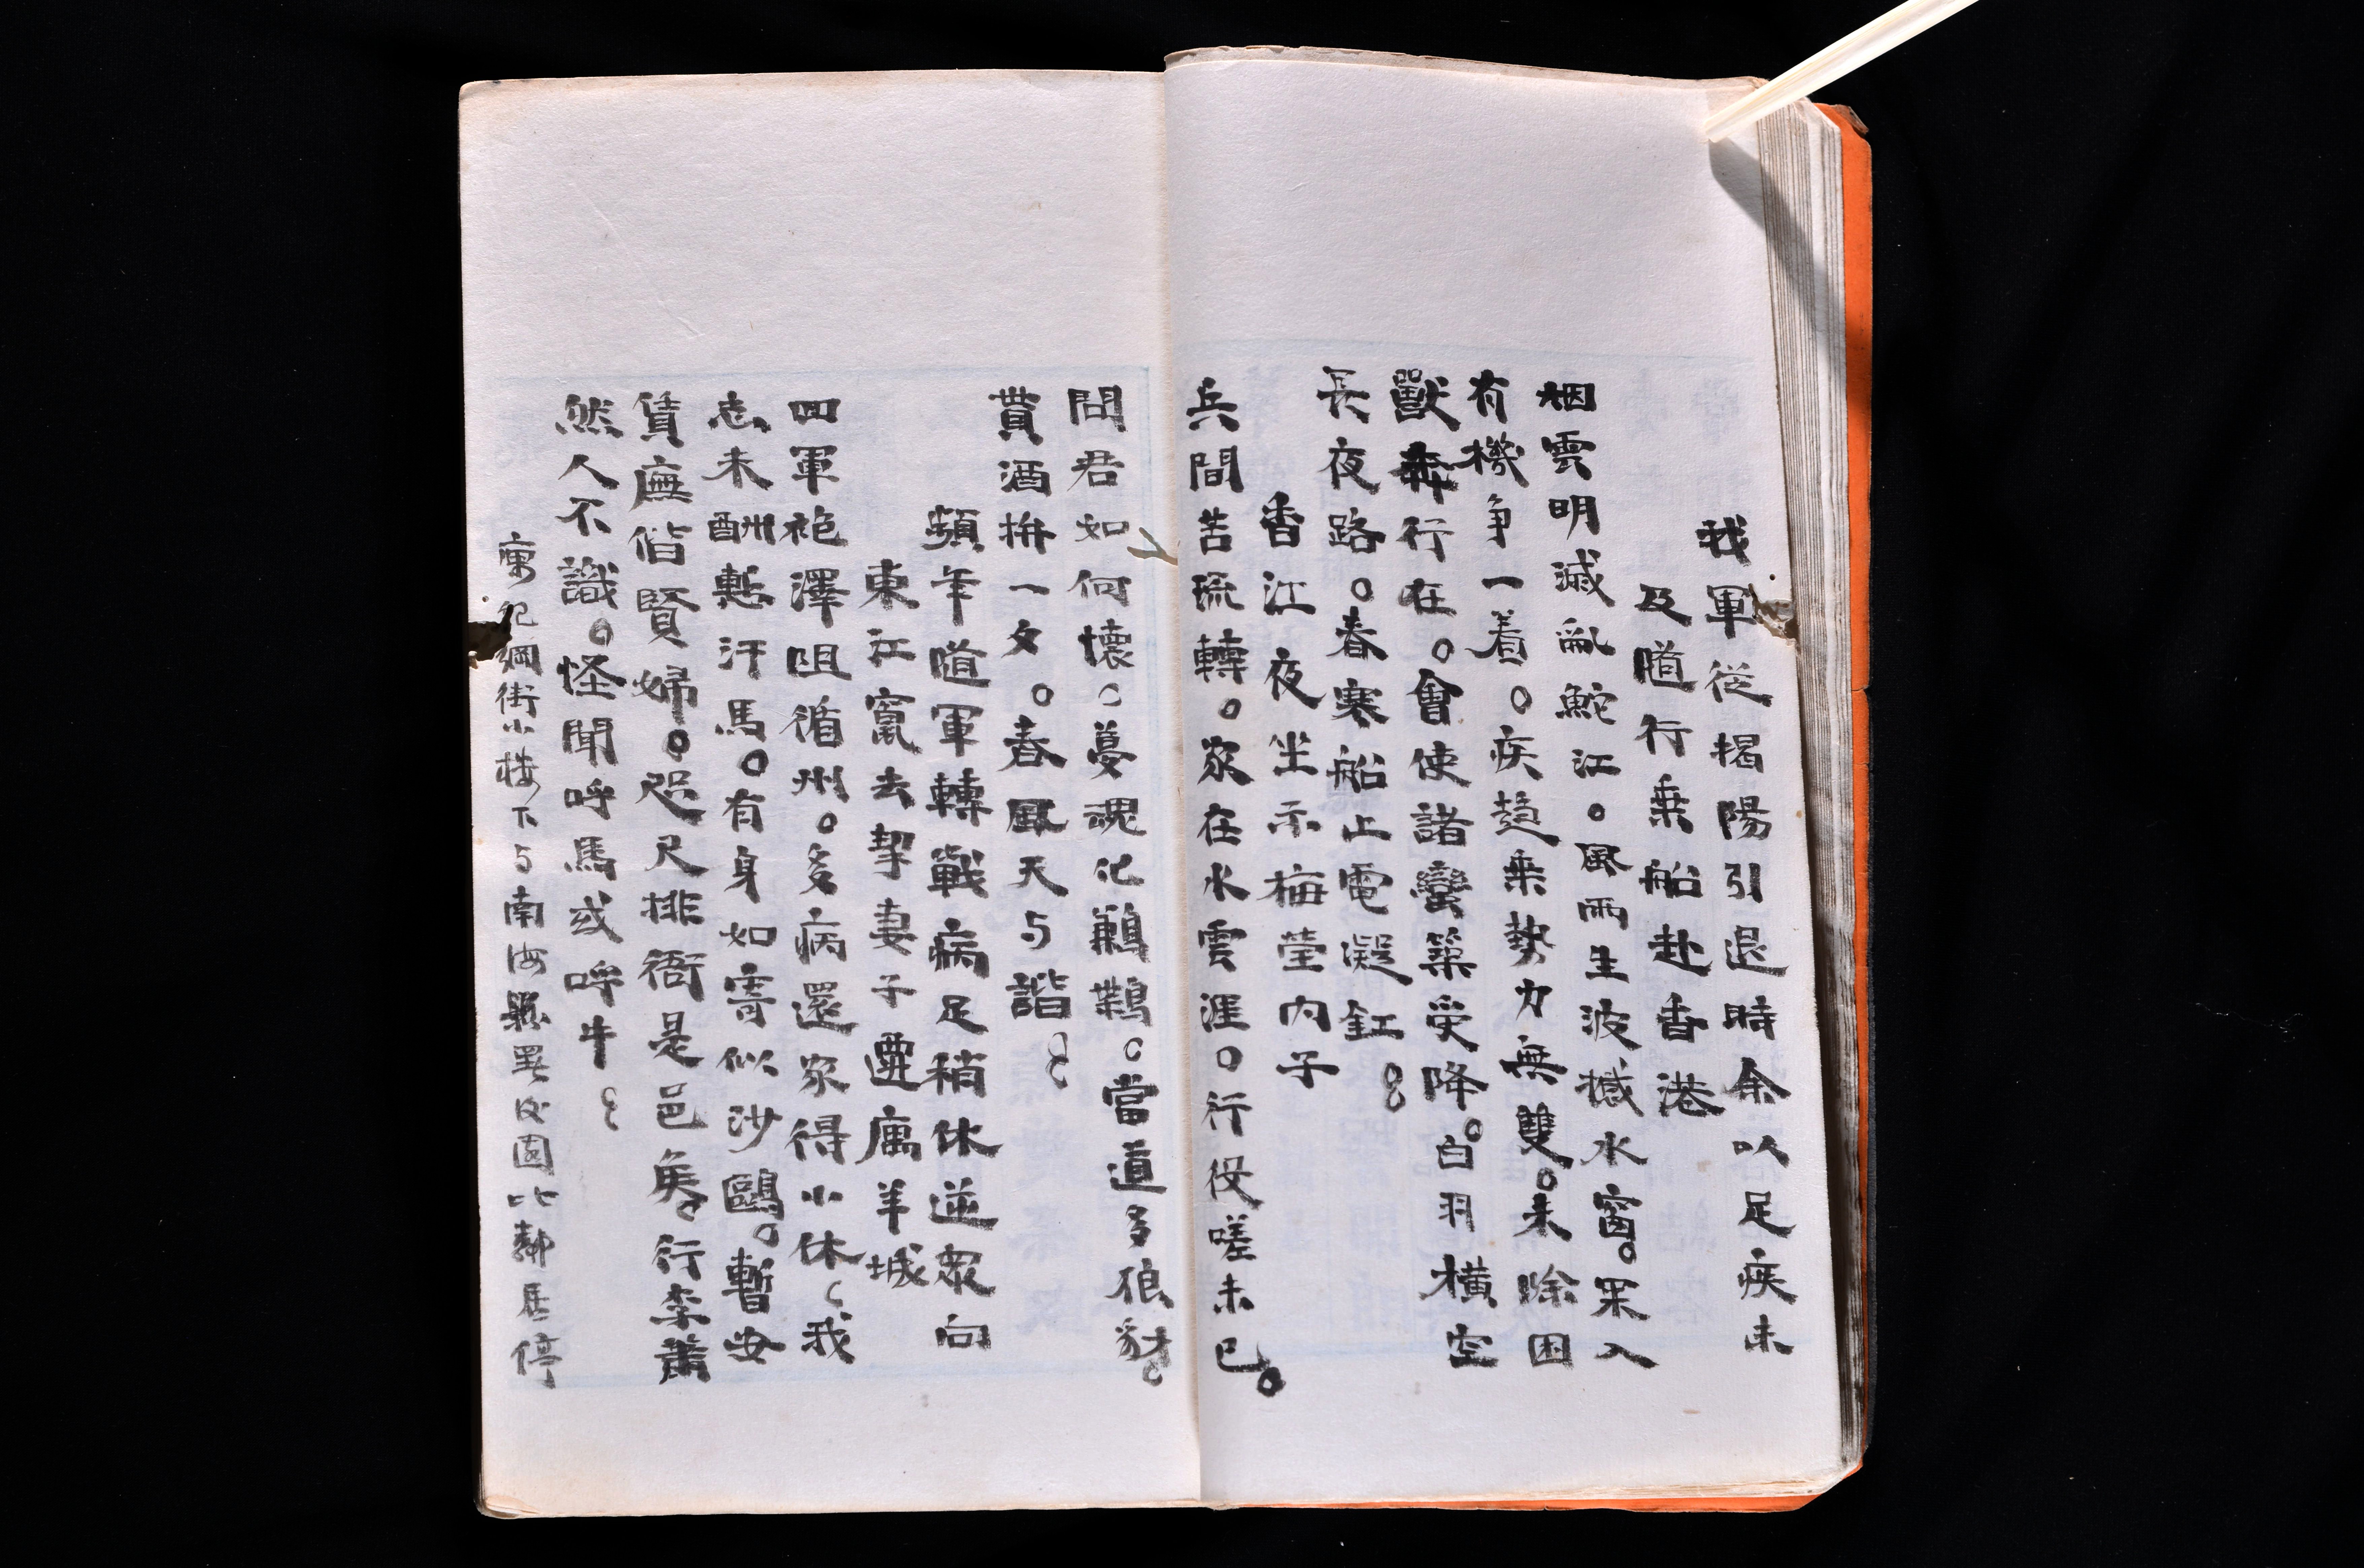 我軍從揭陽引退時余以足疾未
及隨行乘船赴香港
烟雲明滅亂鮀江。風雨生波撼水窗。果入
有機爭一着。疾趍乘勢力無雙。未除困
獸犇行在。會使諸蠻築受降。白羽橫空
長夜路。春寒船上電凝釭。
香江夜坐示梅瑩內子
兵間苦琉轉。家在水雲涯。行役嗟未已。
問君如何懷。夢魂化鶼鶼。當道多狼豺。
貰酒拚一夕。春風天与諧。
頻年隨軍轉戰病足稍休逆眾向
東江竄去挈妻子遷寓羊城
四軍袍澤阻循州。多病還家得小休。我
志未酬慙汗馬。有身如寄似沙鷗。暫安
賃廡偕賢婦。咫尺排衙是邑矦。行李蕭
然人不識。怪聞呼馬或呼牛。
寓紀綱街小樓下与南海縣署及園比鄰居停